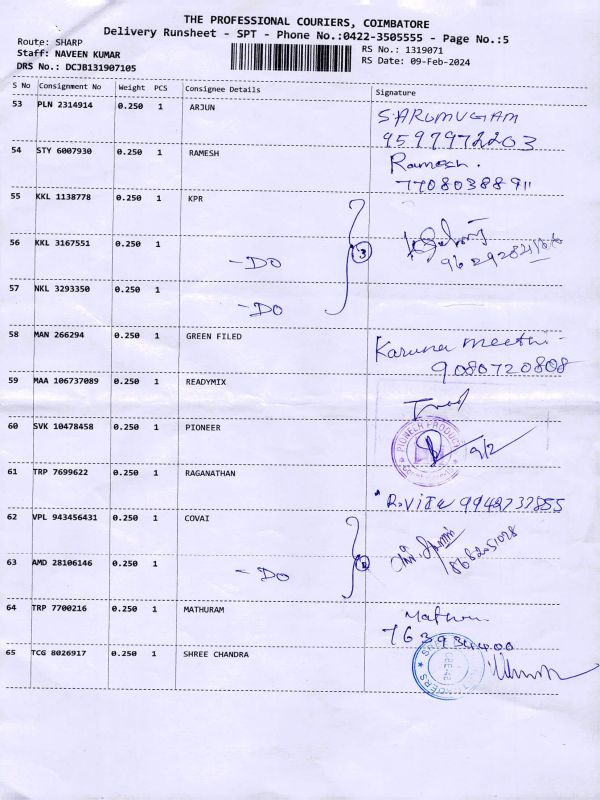 THE PROFESSIONAL COURIERS, COIMBATORE
Delivery Runsheet - SPT - Phone No.:0422-3505555 - Page No.:5
Route: SHARP
Staff: NAVEEN KUMAR
DRS No.: DCJB131907105
RS No.: 1319071
RS Date: 09-Feb-2024
S No Consignment No Weight PCS Consignee Details Signature
53 PLN 2314914 0.250 1 ARJUN
SARUMUGAM
9597972203
54 STY 6007930 0.250 1 RAMESH
Ramesh.
7708038891
55 KKL 1138778 0.250 1 KPR
56 KKL 3167551 0.250 1
- DO
3
57 NKL 3293350 0.250 1
- DO
58 MAN 266294 0.250 1 GREEN FILED
Karuna
9080720808
59 MAA 106737089 0.250 1 READYMIX
60 SVK 10478458 0.250 1 PIONEER
PIONEER PRODUC
9/2
61 TRP 7699622 0.250 1 RAGANATHAN
9942737855
62 VPL 943456431 0.250 1 COVAI
63 AMD 28106146 0.250 1
- DO
64 TRP 7700216 0.250 1 MATHURAM
65 TCG 8026917 0.250 1 SHREE CHANDRA